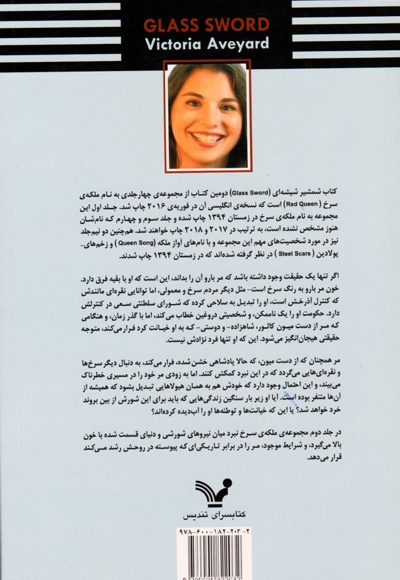 GLASS SWORD
Victoria Aveyard
کتاب شمشیر شیشه‌ای (Glass Sword) دومین کتاب از مجموعه‌ی چهارجلدی به نام ملکه‌ی
سرخ (Red Queen) است که نسخه‌ی انگلیسی آن در فوریه‌ی ۲۰۱۶ چاپ شد. جلد اول این
مجموعه به نام ملکه‌ی سرخ در زمستان ۱۳۹۴ چاپ شده و جلد سوم و چهارم که نام‌شان
هنوز مشخص نشده است، به ترتیب در ۲۰۱۷ و ۲۰۱۸ چاپ خواهند شد. هم‌چنین دو نیم‌جلد
نیز در مورد شخصیت‌های مهم این مجموعه و با نام‌های آواز ملکه (Queen Song) و زخم‌های-
پولادین (Steel Scars) در نظر گرفته شده‌اند که در زمستان ۱۳۹۴ چاپ شدند.
اگر تنها یک حقیقت وجود داشته باشد که مر بارو آن را بداند، این است که او با بقیه فرق دارد.
خون مر بارو به رنگ سرخ است- مثل دیگر مردم سرخ و معمولی، اما توانایی نقره‌ای مانندش
که کنترل آذرخش است، او را تبدیل به سلاحی کرده که شورای سلطنتی سعی در کنترلش
دارد. حکومت او را یک ناممکن، و شخصیتی دروغین خطاب می‌کند، اما با گذر زمان، و هنگامی
که مر از دست میون کالور، شاهزاده- و دوستی- که به او خیانت کرد فرار می‌کند، متوجه
حقیقتی هیجان‌انگیز می‌شود. این که او تنها فرد نژادش نیست.
مر همچنان که از دست میون، که حالا پادشاهی خشن شده، فرار می‌کند، به دنبال دیگر سرخ‌ها
و نقره‌ای‌هایی می‌گردد که در این نبرد کمکش کنند. اما به زودی مر خود را در مسیری خطرناک
می‌بیند، و این احتمال وجود دارد که خودش هم به همان هیولاهایی تبدیل بشود که همیشه از
آن‌ها متنفر بوده است. آیا او زیر بار سنگین زندگی‌هایی که باید برای این شورش از بین بروند
خرد خواهد شد؟ یا این که خیانت‌ها و توطئه‌ها او را آب‌دیده کرده‌اند؟
در جلد دوم مجموعه‌ی ملکه‌ی سرخ نبرد میان نیروهای شورشی و دنیای قسمت شده با خون
بالا می‌گیرد، و شرایط موجود، مر را در برابر تاریکی‌ای که پیوسته در روحش رشد می‌کند
قرار می‌دهد.
کتابسرای تندیس
۹۷۸-۶۰۰-۱۸۲-۲۰۳-۲